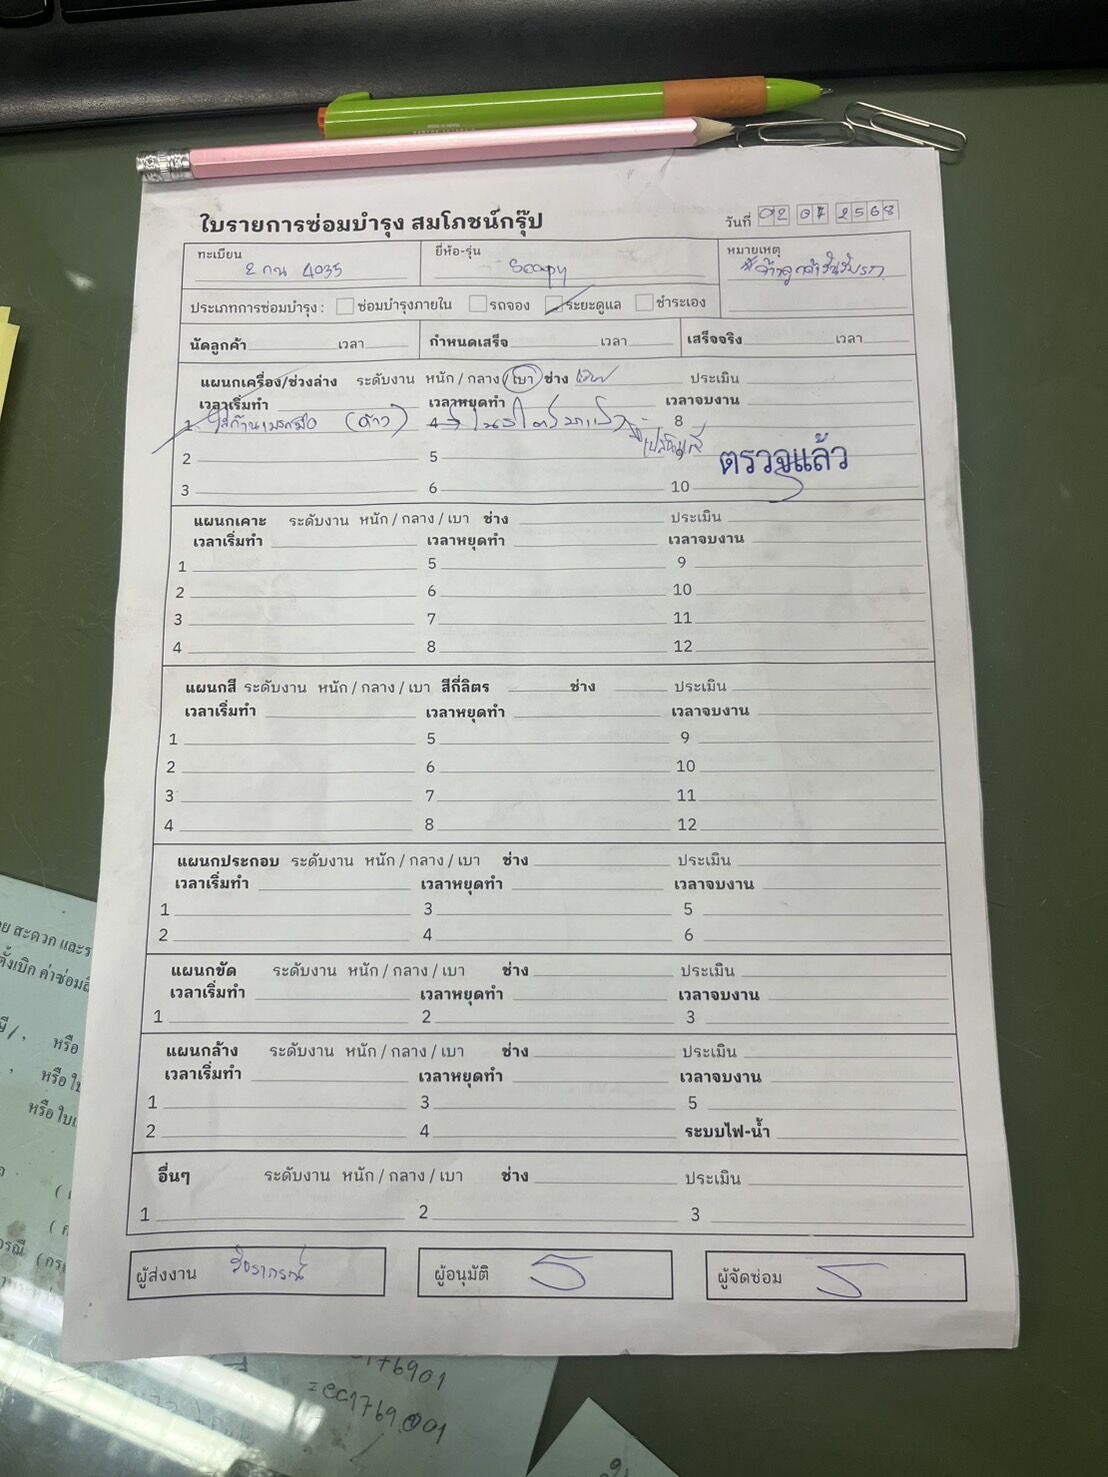 ใบรายการซ่อมบำรุง สมโภชน์กรุ๊ป
วันที่ 02 07 2568
ทะเบียน 2 กน 4035
ยี่ห้อ-รุ่น Scoopy
หมายเหตุ
ประเภทการซ่อมบำรุง : ซ่อมบำรุงภายใน รถจอง ระยะดูแล ชำระเอง
นัดลูกค้า เวลา กำหนดเสร็จ เวลา เสร็จจริง เวลา
แผนกเครื่อง/ช่วงล่าง ระดับงาน หนัก / กลาง / เบา ช่าง ประเมิน
เวลาเริ่มทำ เวลาหยุดทำ เวลาจบงาน
1 ใส่ก้านเบรคมือ (ค้าง) 4 8
2 5
3 6 10
ตรวจแล้ว
แผนกเคาะ ระดับงาน หนัก / กลาง / เบา ช่าง ประเมิน
เวลาเริ่มทำ เวลาหยุดทำ เวลาจบงาน
1 5 9
2 6 10
3 7 11
4 8 12
แผนกสี ระดับงาน หนัก / กลาง / เบา สีกี่ลิตร ช่าง ประเมิน
เวลาเริ่มทำ เวลาหยุดทำ เวลาจบงาน
1 5 9
2 6 10
3 7 11
4 8 12
แผนกประกอบ ระดับงาน หนัก / กลาง / เบา ช่าง ประเมิน
เวลาเริ่มทำ เวลาหยุดทำ เวลาจบงาน
1 3 5
2 4 6
แผนกขัด ระดับงาน หนัก / กลาง / เบา ช่าง ประเมิน
เวลาเริ่มทำ เวลาหยุดทำ เวลาจบงาน
1 2 3
แผนกล้าง ระดับงาน หนัก / กลาง / เบา ช่าง ประเมิน
เวลาเริ่มทำ เวลาหยุดทำ เวลาจบงาน
1 3 5
2 4 ระบบไฟ-น้ำ
อื่นๆ ระดับงาน หนัก / กลาง / เบา ช่าง ประเมิน
1 2 3
ผู้ส่งงาน
ผู้อนุมัติ
ผู้จัดซ่อม
สะดวก และ
ตั้งเบิก ค่าซ่อม
หรือ
หรือ ใบ
หรือ ใบ